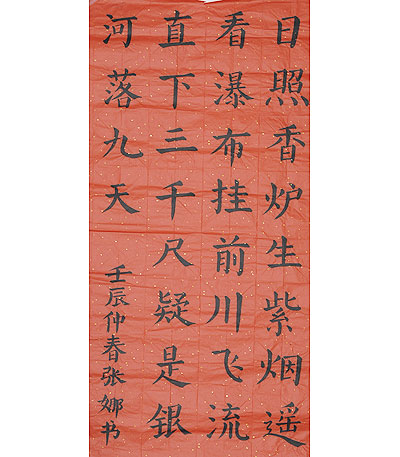 日照香炉生紫烟遥
看瀑布挂前川飞流
直下三千尺疑是银
河落九天
壬辰仲春张娜书